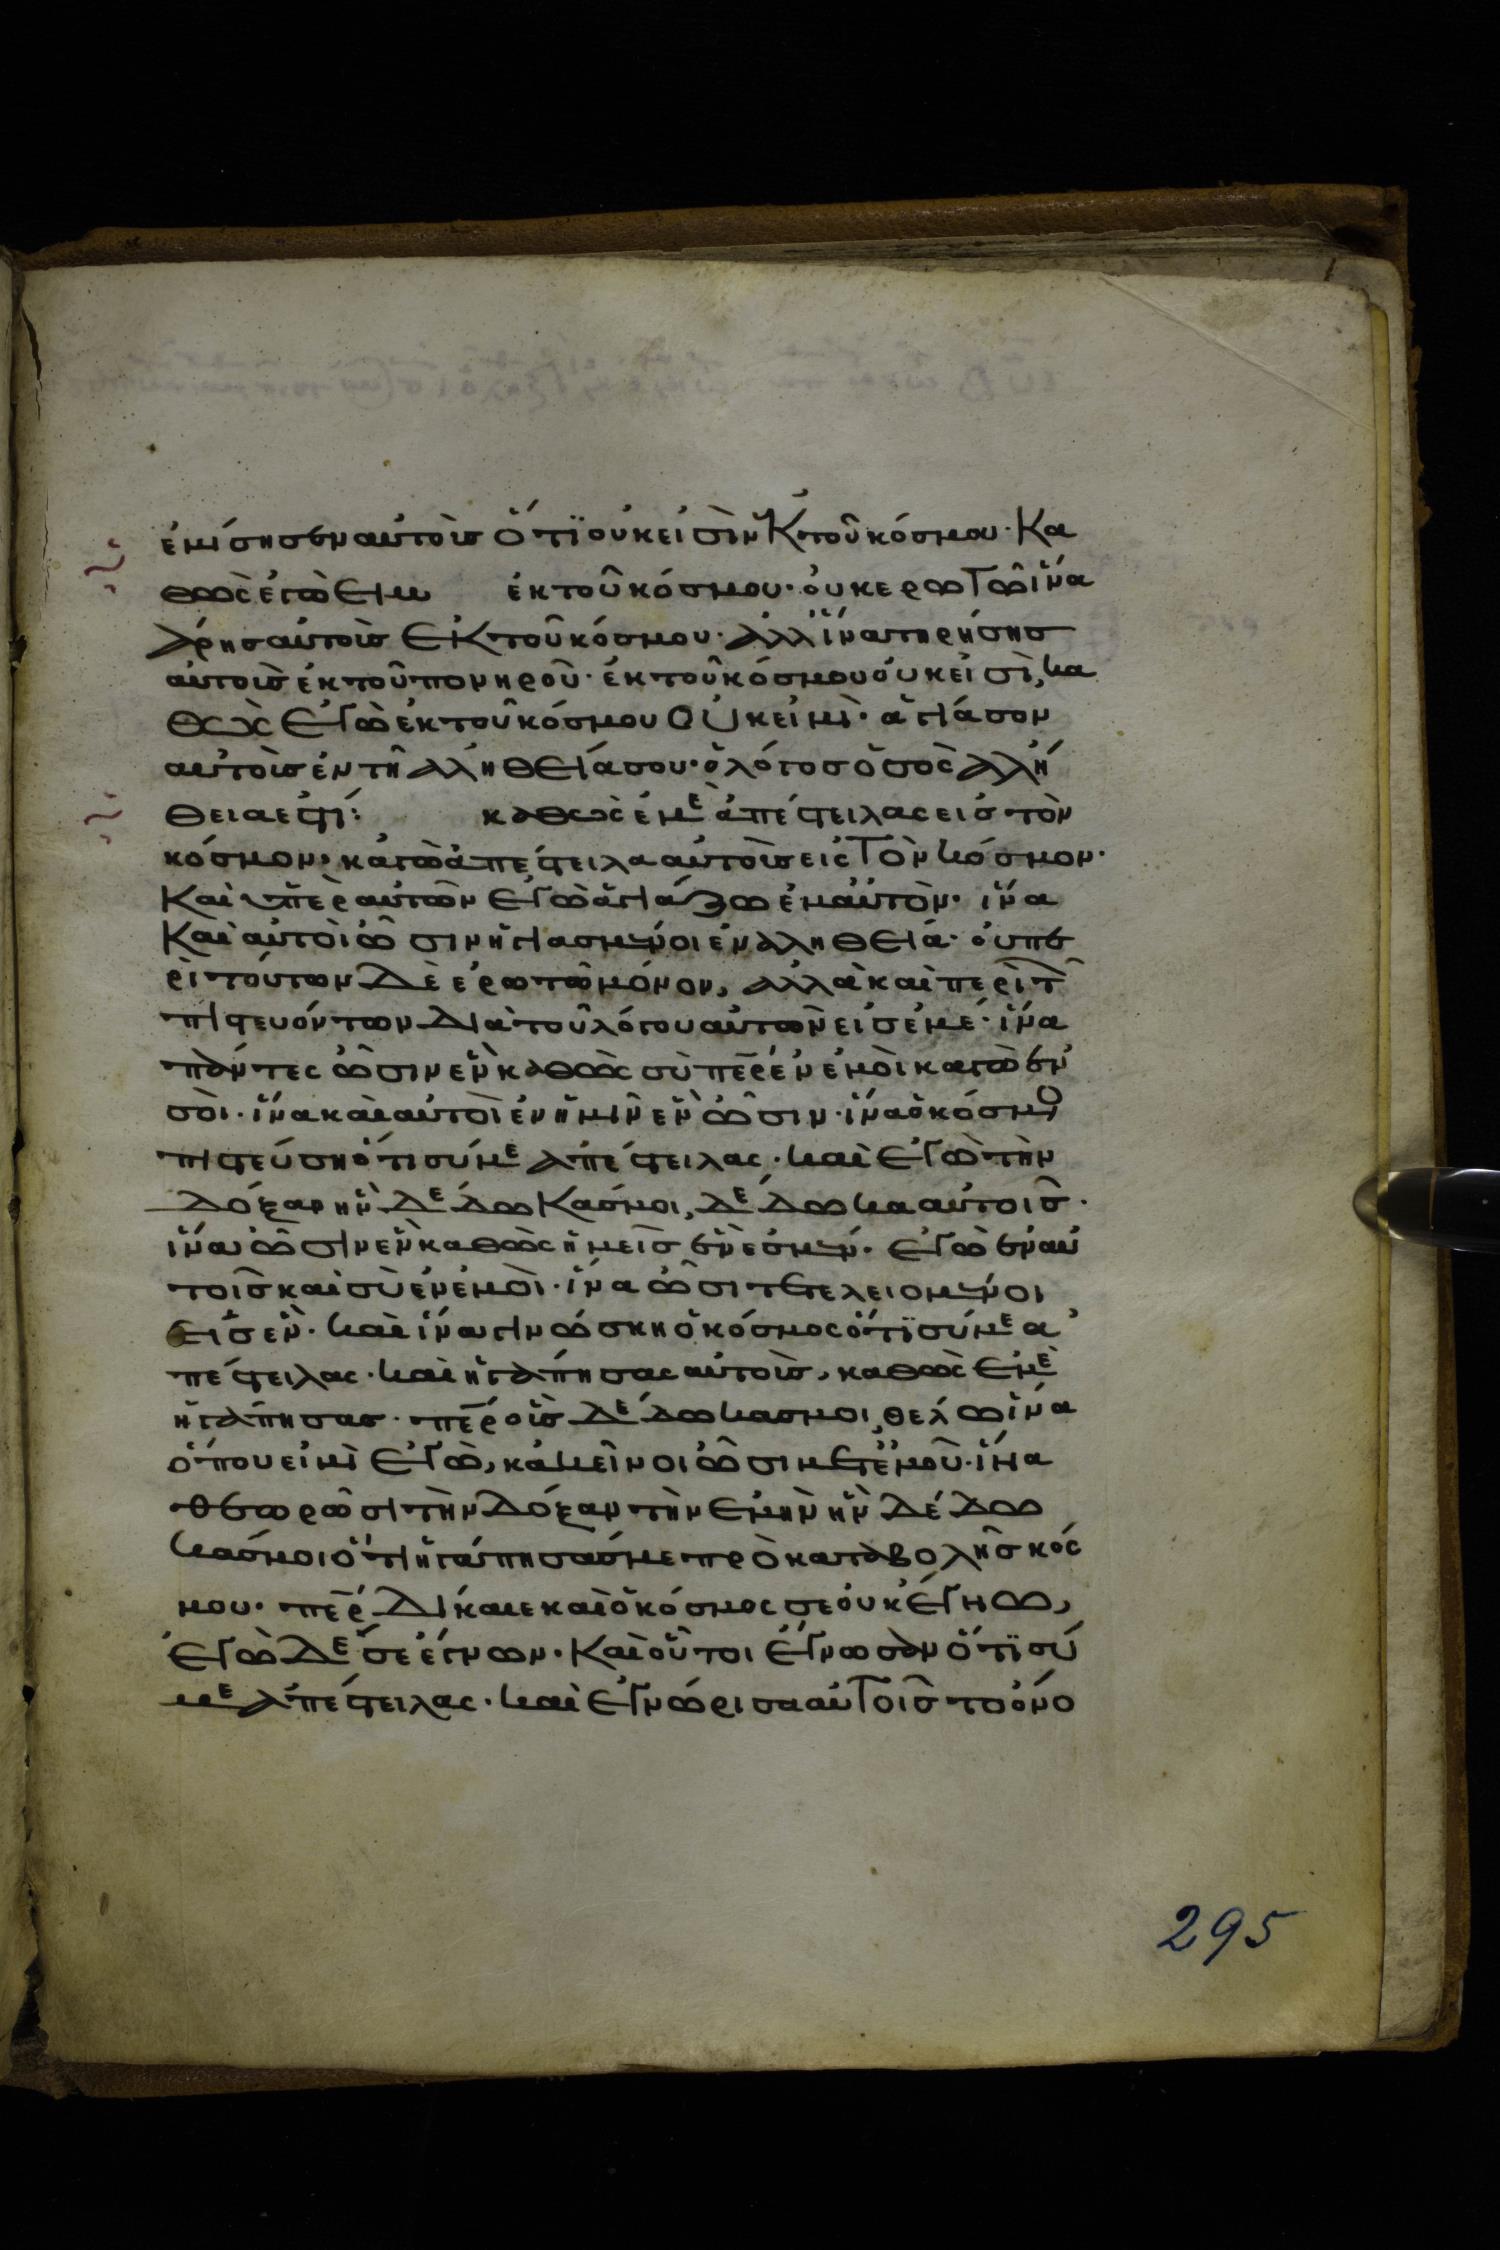 ἐμίσησεν αὐτοὺς ὅτι οὐκ εἰσὶν ἐκ τοῦ κόσμου· Κα
θὼς ἐγὼ εἰμι ἐκ τοῦ κόσμου· οὐκ ερωτῶ ἵνα
ἄρης αὐτοὺς ἐκ τοῦ κόσμου· ἀλλ ἵνα τηρήσης
αὐτοὺς ἐκ τοῦ πονηροῦ· ἐκ τοῦ κόσμου οὐκ εἰσὶ, κα
θὼς ἐγὼ ἐκ τοῦ κόσμου οὐκ εἰμὶ· ἁγίασον
αὐτοὺς ἐν τῆ ἀληθεία σου· ὁ λόγος ὁ σὸς ἀλή
θεια εστί: καθὼς ἐμὲ ἀπέστειλας εις τὸν
κόσμον· κἀγὼ ἀπέστειλα αὐτοὺς εις τὸν κόσμον·
Καὶ ὑπὲρ αὐτῶν ἐγὼ ἁγιάζω ἐμαὐτὸν· ἵνα
Και αὐτοὶ ὦσιν ἡγιασμένοι ἐν ἀληθεία· ὀυ πε
ρὶ τούτων δὲ ἐρωτῶ μόνον, ἀλλὰ καὶ περὶ τῶ
πιστευόντων διὰ τοῦ λόγου αὐτῶν εἰς ἐμέ· ἵνα
πάντες ὦσιν ἓν καθὼς σὺ περ ἐν ἐμοὶ κἀγὼ ἐν
σοὶ· ἵνα καὶ αὐτοὶ ἐν ἡμῖν ἓν ὦσιν· ἵνα ὁ κόσμο
πιστεύση ὅτι σύ με ἀπέστειλας· καὶ ἐγὼ τὴν
δόξαν ἣν δέδωκάς μοι, δέδωκα αὐτοῖς·
ἵνα ὦσιν ἓν καθὼς ἡμεῖς ἓν εσμέν· ἐγὼ ἐν αὐ
τοῖς καὶ σὺ ἐν ἐμοὶ· ἵνα ὦσι τετελειομένοι
εἰς ἓν· καὶ ἵνα γινώσκη ὁ κόσμος ὅτι σύ με ἀ
πέστειλας· καὶ ἠγάπησας αὐτοὺς, καθὼς ἐμὲ
ἠγάπησας· περ οὓς δέδωκας μοι, θελω ἵνα
ὅπου εἰμὶ ἐγὼ, κἀκεῖνοι ὦσι μετ ἐμοῦ· ἵνα
θεωρῶσι τὴν δόξαν τὴν ἐμὴν ἣν δέδω
κάς μοι ὅτι ἠγάπησάς με πρὸ καταβολῆς κόσ
μου· περ δίκαιε καὶ ὁ κόσμος σε οὐκ ἔγνω,
ἐγὼ δέ σε ἔγνων· Καὶ οὗτοι ἔγνωσαν ὅτι σύ
με ἀπέστειλας· καὶ ἐγνώρισα αὐτοῖς το όνο
295